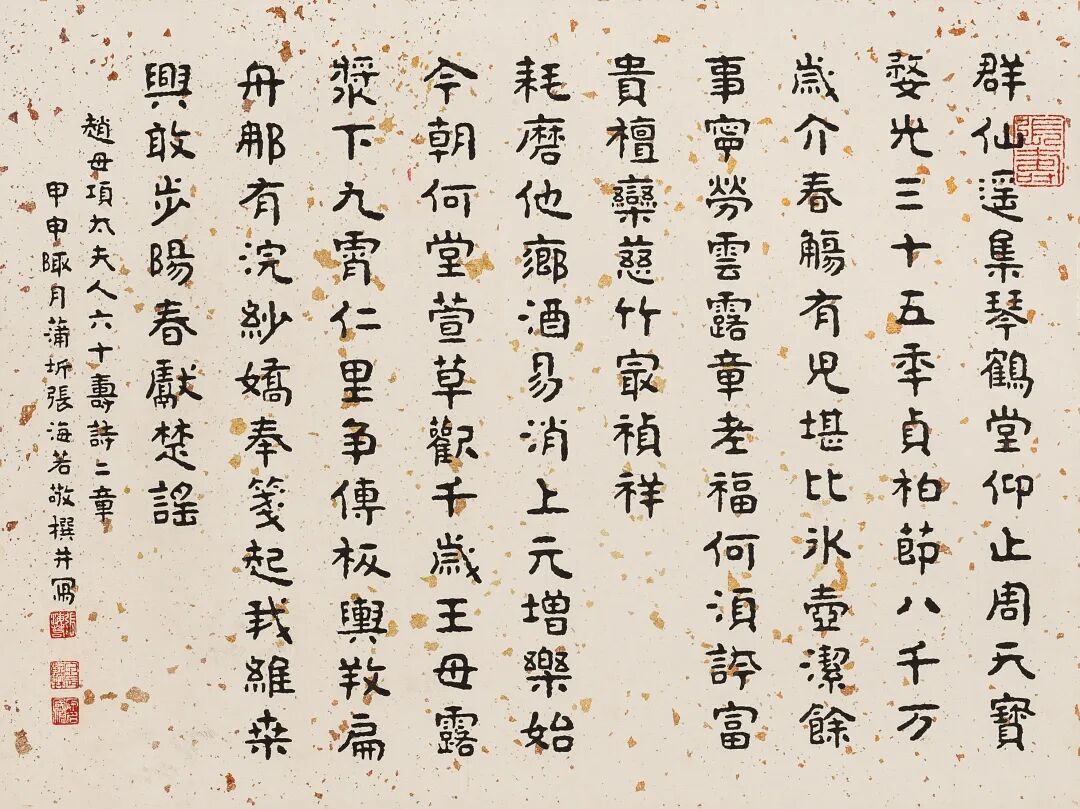 群仙遥集琴鶴堂仰止周天寶
婺光三十五秊貞柏節八千万
歲介春觴有児堪比冰壺潔餘
事寧勞雲露章老福何湏誇富
貴檀欒慈竹冣禎祥
耗磨他鄉酒易消上元增樂始
今朝何堂萱草歡千歲王母露
漿下九霄仁里争傳板輿敎扁
舟那有浣紗嬌奉箋起我維桒
興敢步陽春獻楚謠
趙母項太夫人六十壽詩二章
甲申陬月蒲圻張海若敬撰并寫
張壽